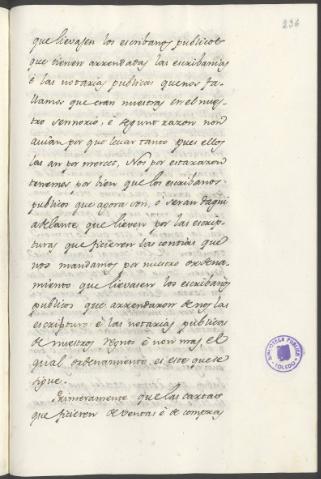 236
que llevasen los escribanos publicos
que tienen arrendadas las escribanias
è las notarias publicas quenos fa-
llamos que eran nuestras en el nues-
tro sennorio, è segunt razon non
avian por que levar tanto pues ellos
las an por merced, Nos por esta razon
tenemos por bien que los escribanos
publicos que agora son, o seran daqui
adelante que lieven por las escrip-
turas que ficieren las contias que
nos mandamos por nuestro ordena-
miento que llevasen los escribanos
publicos que arrendaron de nos las
escripturas è las notarias publicas
de nuestros regnos è non mas, el
qual ordenamiento es este que se
sigue.
Primeramente que las cartas
que ficieren de ventas è de compras
BIBLIOTECA PUBLICA
TOLEDO